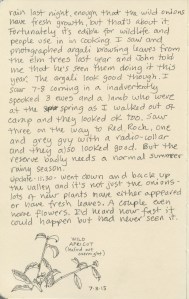 rain last night, enough that the wild onions
have fresh growth, but that's about it.
Fortunately its edible for wildlife and
people use in in cooking. I saw and
photographed argali browsing leaves from
the elm trees last year and John told
me that he's seen them doing it this
year. The argali look good though. I
saw 7-8 coming in a inadvertently
spooked 3 ewes and a lamb who were
at the spring as I walked out of
camp and they looked ok too. Saw
three on the way to Red Rock, one
and grey guy with a radio-collar
and they also looked good. But the
reserve badly needs a normal summer
rainy season.
Update: 11:30 - went down and back up
the valley and it's not just the onions -
lots of new plants have either appeared
or have fresh leaves. A couple even
have flowers. I'd heard how fast it
could happen but had never seen it.
WILD
APRICOT
(leafed out
overnight)
7-8-15